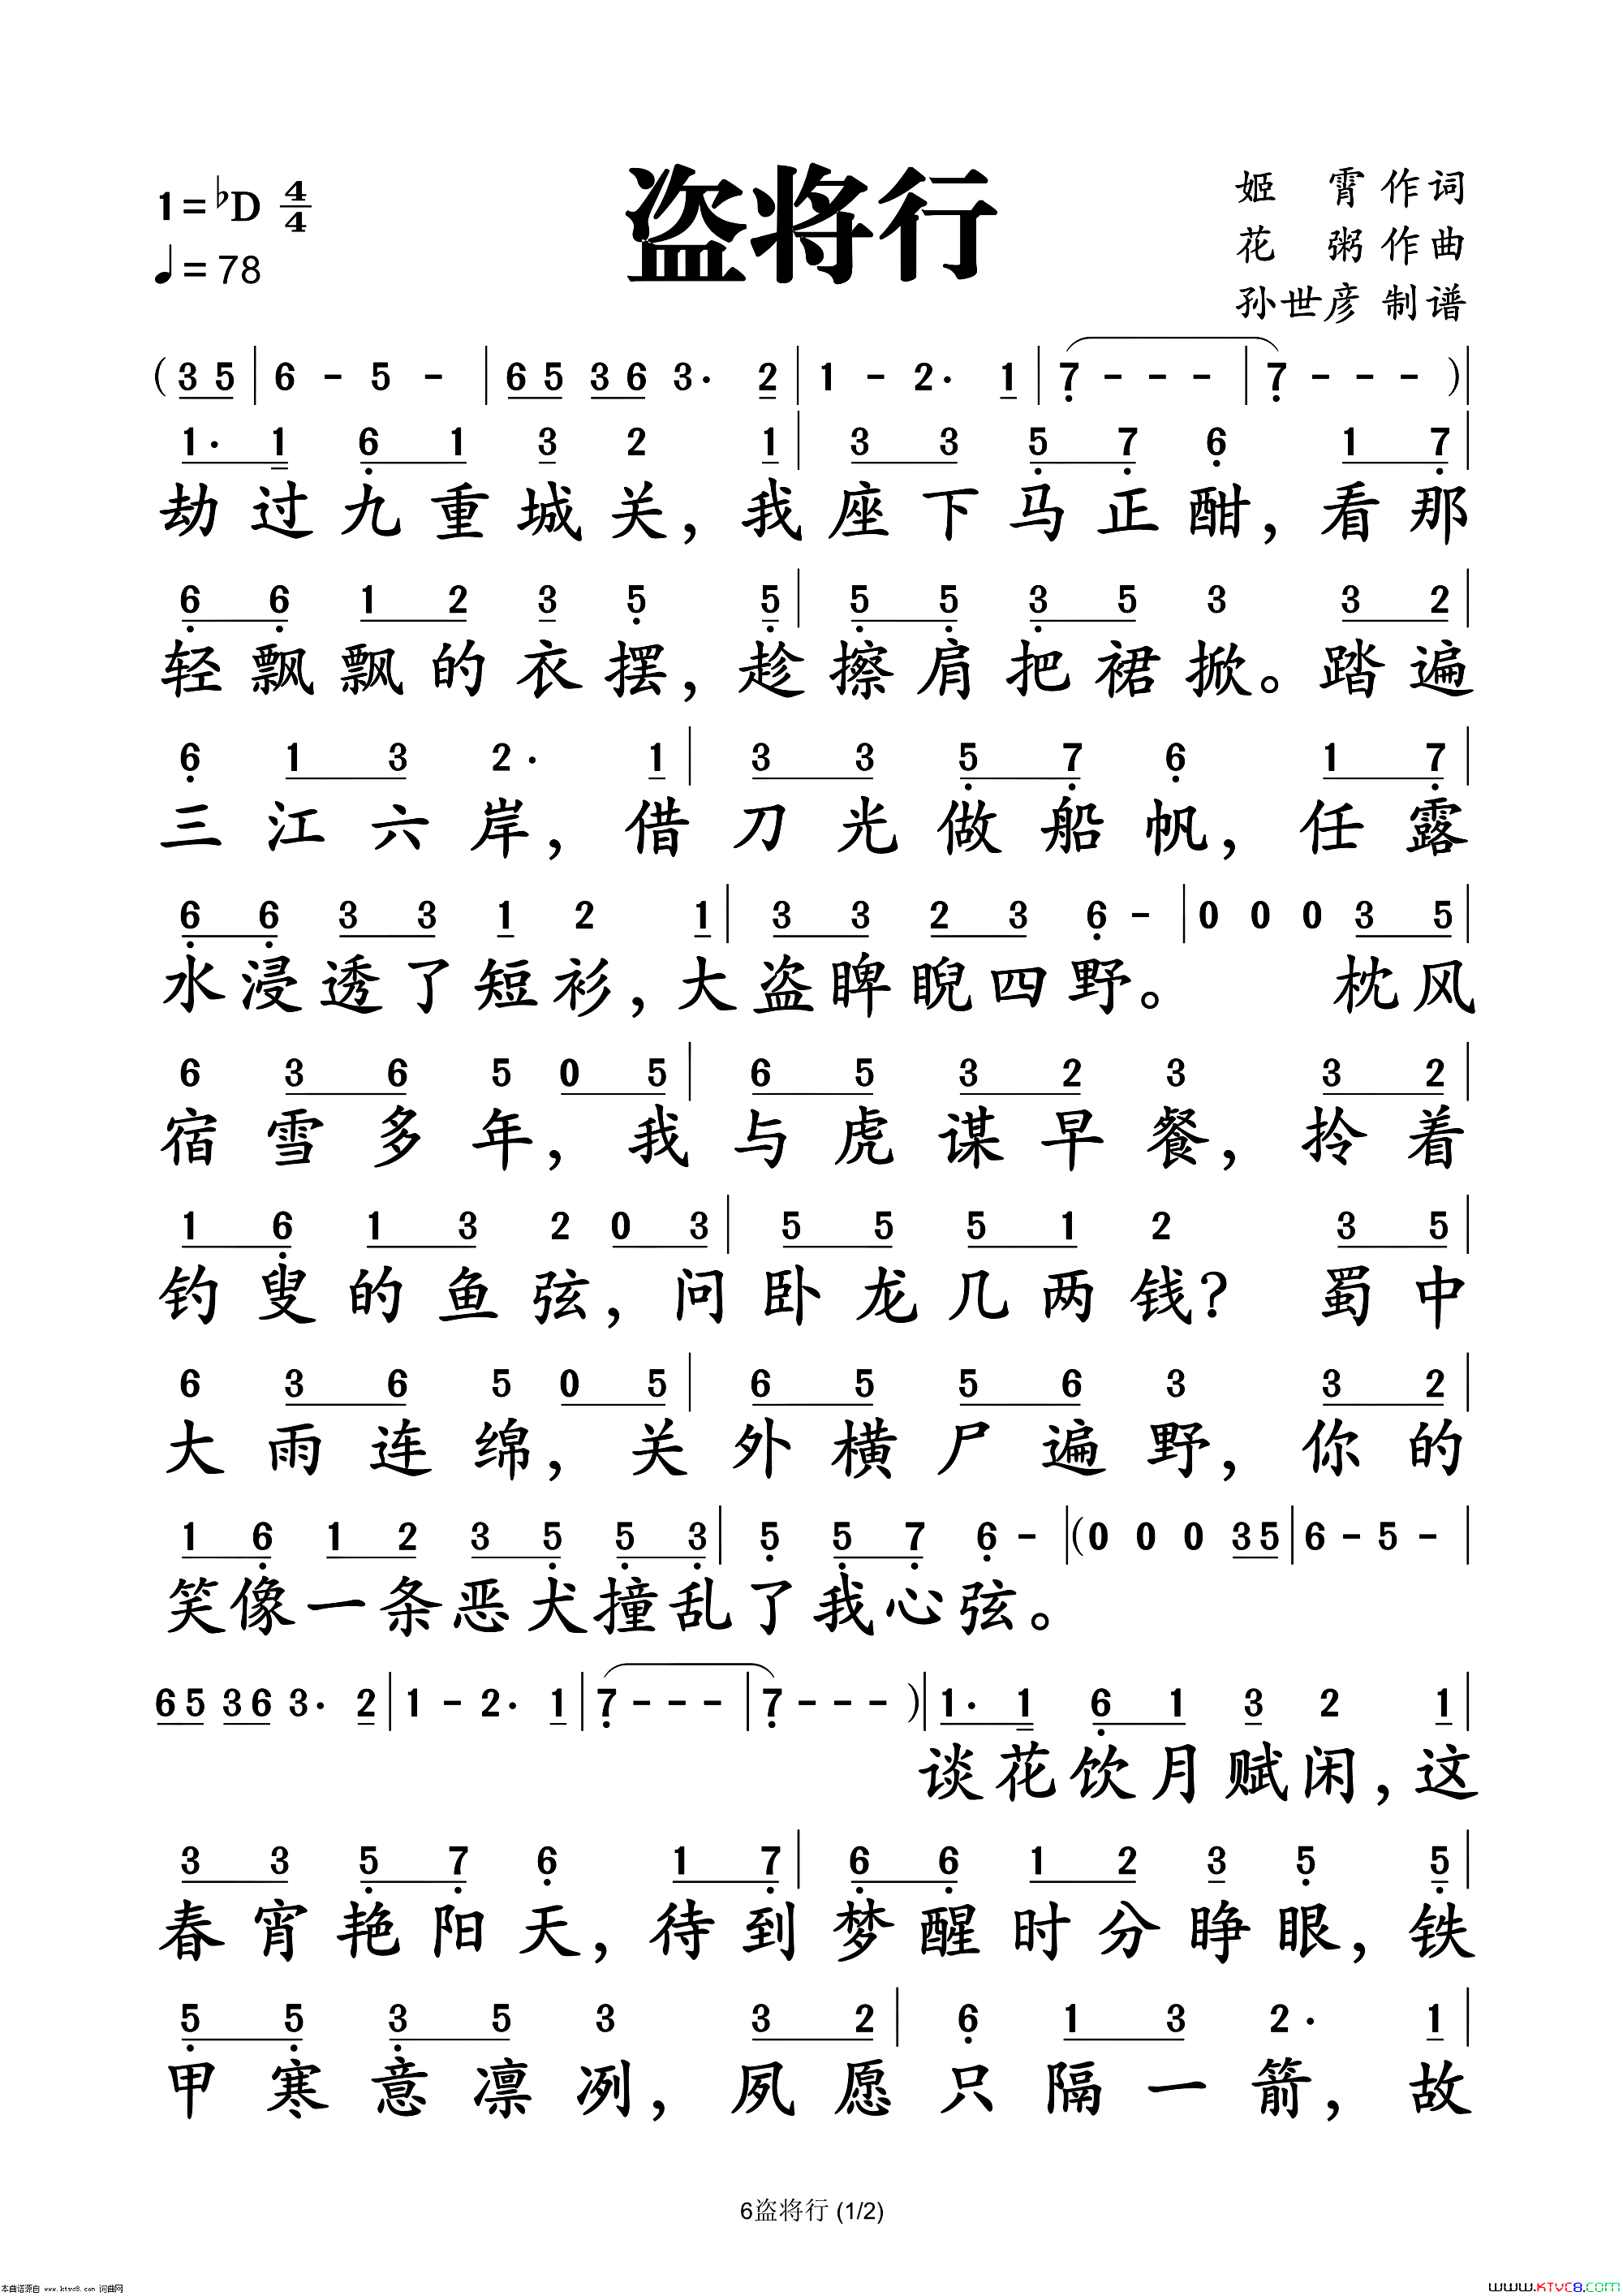 1=♭D 4/4
♩=78
盗将行
姬 霄 作词
花 粥 作曲
孙世彦 制谱
(3 5 | 6 - 5 - | 6 5 3 6 3· 2 | 1 - 2· 1 | 7̣ - - - | 7̣ - - - )|
1· 1 6̣ 1 3 2 1 | 3 3 5̣ 7̣ 6̣ 1 7̣ |
劫过九重城关，我座下马正酣，看那
6̣ 6̣ 1 2 3 5̣ 5̣ | 5̣ 5̣ 3̣ 5 3 3 2 |
轻飘飘的衣摆，趁擦肩把裙掀。踏遍
6̣ 1 3 2· 1 | 3 3 5̣ 7̣ 6̣ 1 7̣ |
三江六岸，借刀光做船帆，任露
6̣ 6̣ 3 3 1 2 1 | 3 3 2 3 6̣ - | 0 0 0 3 5 |
水浸透了短衫，大盗睥睨四野。 枕风
6 3 6 5 0 5 | 6 5 3 2 3 3 2 |
宿雪多年，我与虎谋早餐，拎着
1 6̣ 1 3 2 0 3 | 5 5 5 1 2 3 5 |
钓叟的鱼弦，问卧龙几两钱？ 蜀中
6 3 6 5 0 5 | 6 5 5 6 3 3 2 |
大雨连绵，关外横尸遍野，你的
1 6̣ 1 2 3 5̣ 5̣ 3̣ | 5̣ 5̣ 7̣ 6̣ - |(0 0 0 3 5 | 6 - 5 - |
笑像一条恶犬撞乱了我心弦。
6 5 3 6 3· 2 | 1 - 2· 1 | 7̣ - - - | 7̣ - - - )| 1· 1 6̣ 1 3 2 1 |
谈花饮月赋闲，这
3 3 5̣ 7̣ 6̣ 1 7̣ | 6̣ 6̣ 1 2 3 5̣ 5̣ |
春宵艳阳天，待到梦醒时分睁眼，铁
5̣ 5̣ 3̣ 5 3 3 2 | 6̣ 1 3 2· 1 |
甲寒意凛冽，夙愿只隔一箭，故
6盗将行 (1/2)
本曲谱源自 www.ktvc8.com 词曲网
www.KTVC8.com